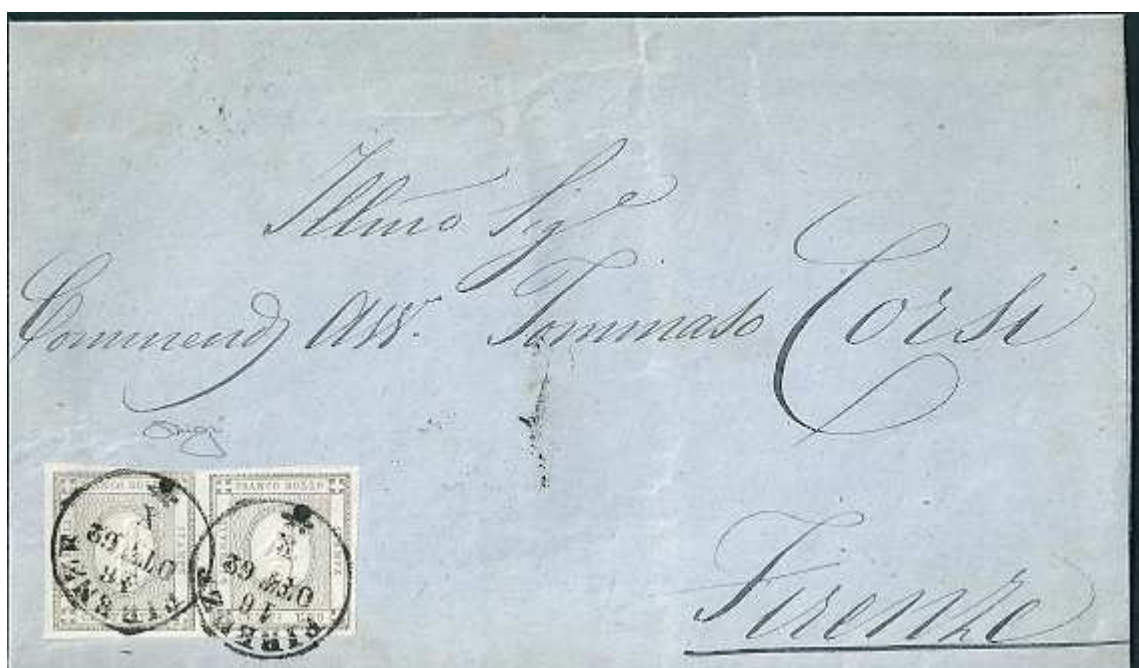 Illmo Sig.e
Commend. Avv. Tommaso Corsi
Firenze
FRANCO BOLLO
FRANCO BOLLO
FIRENZE
OTT 62
FIRENZE
16
OTT 62